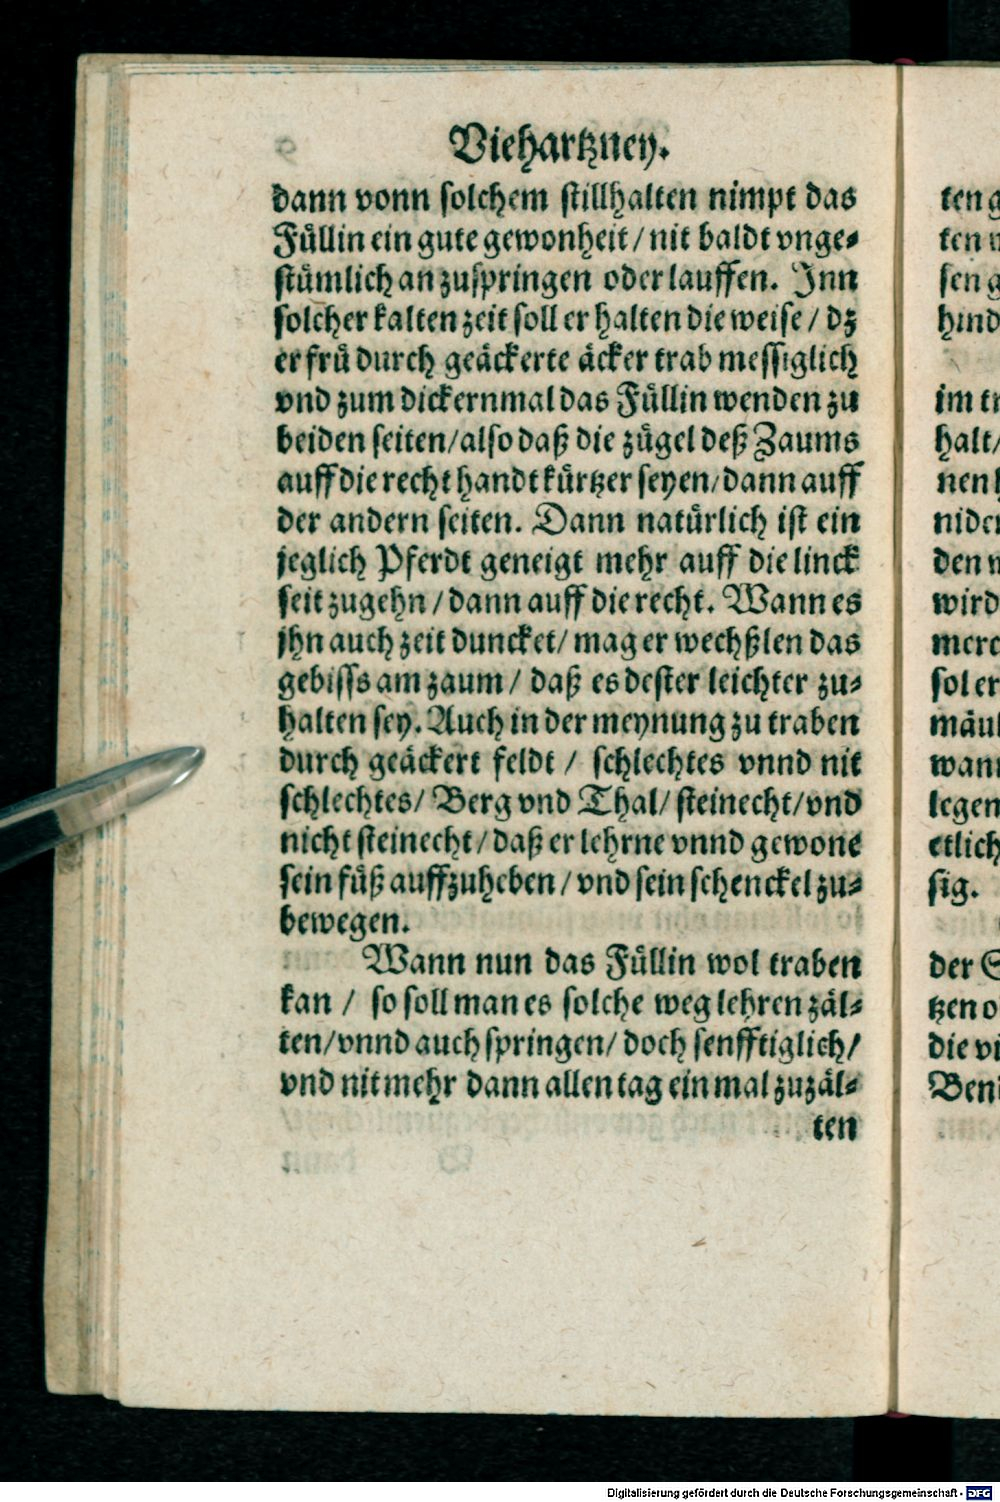 Viehartzney.
dann vonn solchem stillhalten nimpt das
Füllin ein gute gewonheit / nit baldt vnge-
stümlich an zuspringen oder lauffen. Inn
solcher kalten zeit soll er halten die weise / dz
er frü durch geäckerte äcker trab messiglich
vnd zum dickernmal das Füllin wenden zu
beiden seiten / also daß die zügel deß Zaums
auff die recht handt kürtzer seyen / dann auff
der andern seiten. Dann natürlich ist ein
jeglich Pferdt geneigt mehr auff die linck
seit zugehn / dann auff die recht. Wann es
jhn auch zeit duncket / mag er wechßlen das
gebisss am zaum / daß es dester leichter zu-
halten sey. Auch in der meynung zu traben
durch geäckert feldt / schlechtes vnnd nit
schlechtes / Berg vnd Thal / steinecht / vnd
nicht steinecht / daß er lehrne vnnd gewone
sein füß auffzuheben / vnd sein schenckel zu-
bewegen.
Wann nun das Füllin wol traben
kan / so soll man es solche weg lehren zäl-
ten / vnnd auch springen / doch senfftiglich /
vnd nit mehr dann allen tag ein mal zuzäl-
ten
ten g
ten
sen g
hind
im tr
halt /
nen
nider
den
wird
merc
sol er
mäu
wann
legen
etlich
sig.
der S
tzen o
die vi
Ben
Digitalisierung gefördert durch die Deutsche Forschungsgemeinschaft - DFG